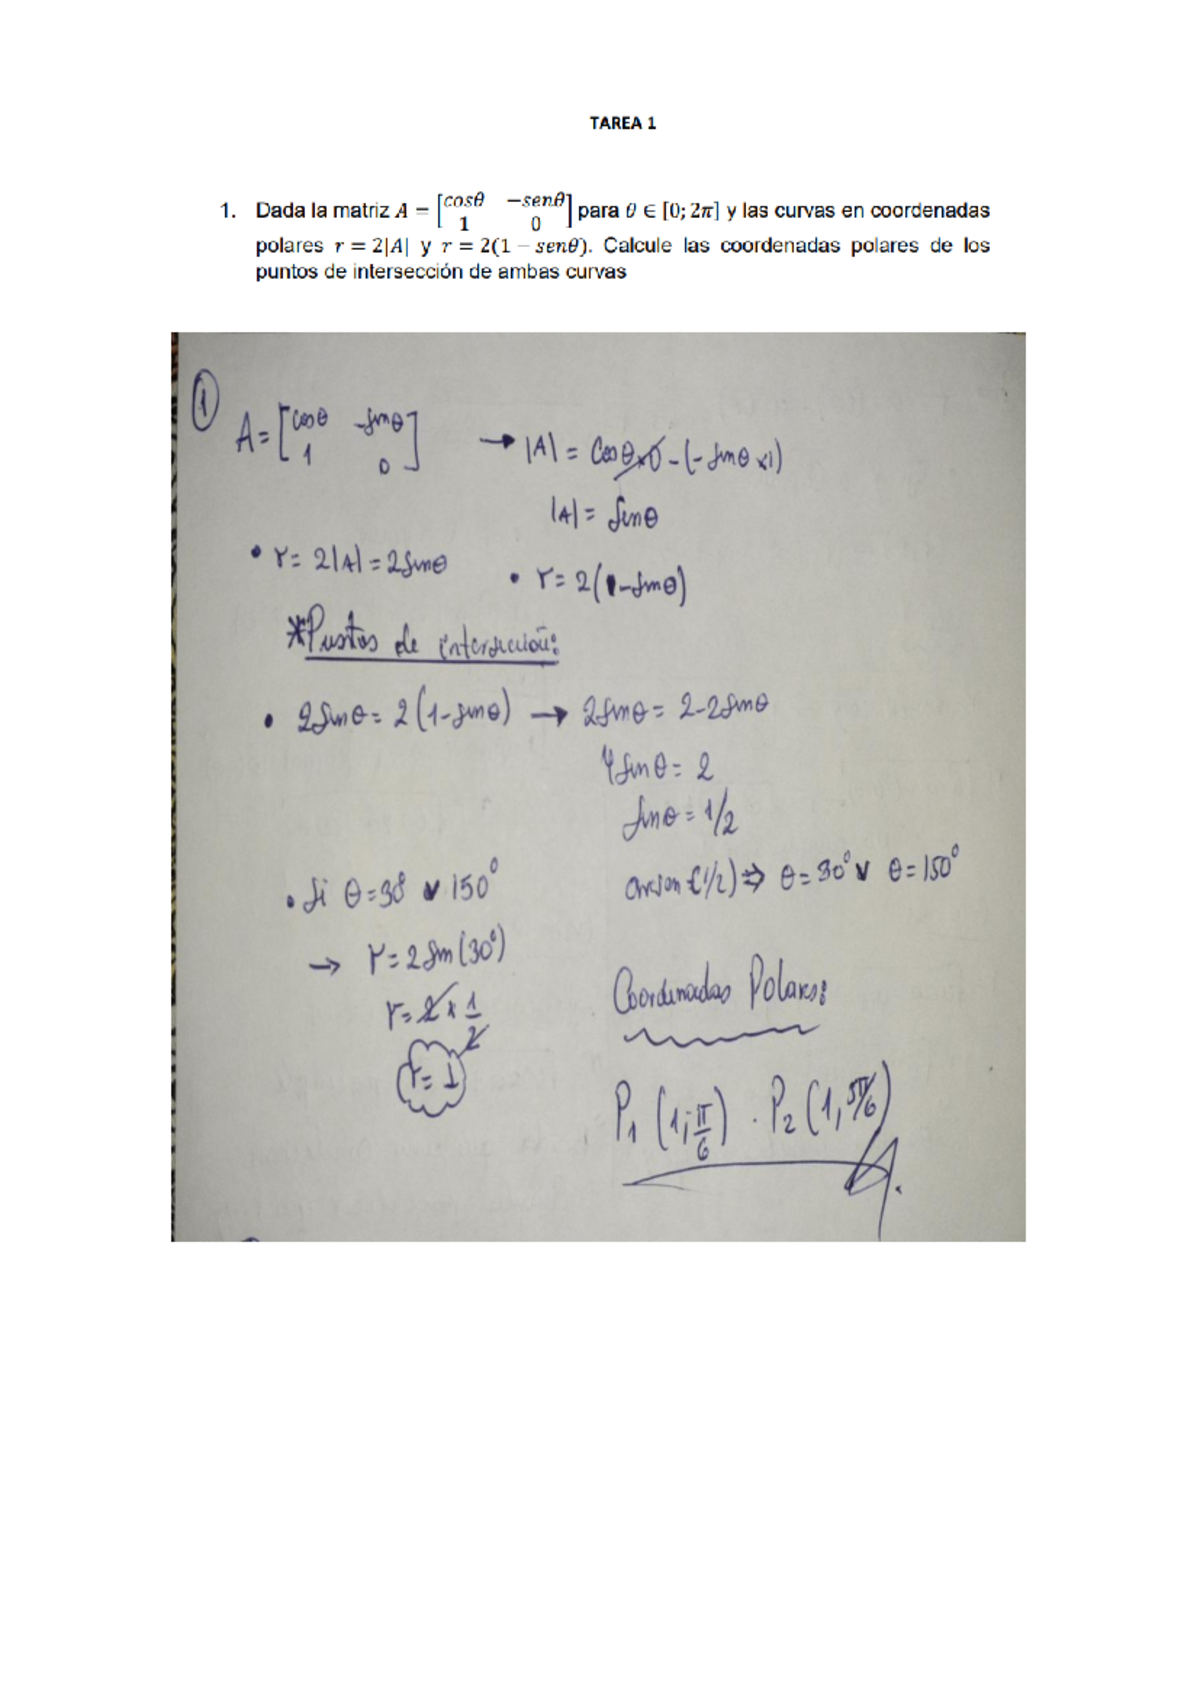 TAREA 1
1. Dada la matriz A = [cosθ −senθ; 1 0] para θ ∈ [0; 2π] y las curvas en coordenadas
polares r = 2|A| y r = 2(1 − senθ). Calcule las coordenadas polares de los
puntos de intersección de ambas curvas
1
A = [cosθ -senθ; 1 0] → |A| = Cosθ×0 - (-senθ×1)
|A| = Senθ
• r = 2|A| = 2senθ • r = 2(1-senθ)
*Puntos de intersección:
• 2senθ = 2(1-senθ) → 2senθ = 2-2senθ
4senθ = 2
senθ = 1/2
arcsen(1/2) ⇒ θ = 30° ∨ θ = 150°
• Si θ = 30° ∨ 150°
→ r = 2sen(30°)
r = 2 × 1/2
r = 1
Coordenadas Polares:
P₁ (1; π/6) . P₂ (1, 5π/6)